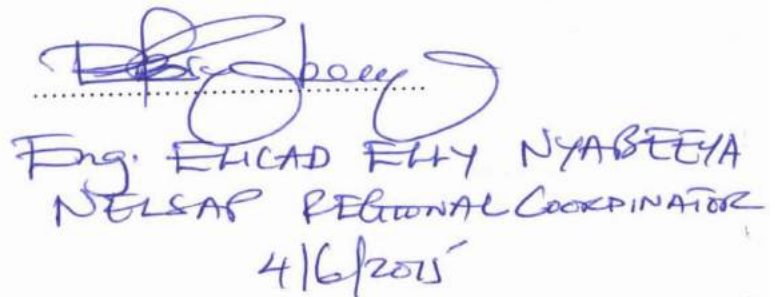 Eng. ELICAD ELLY NYABEEYA
NELSAP REGIONAL COORDINATOR
4/6/2015